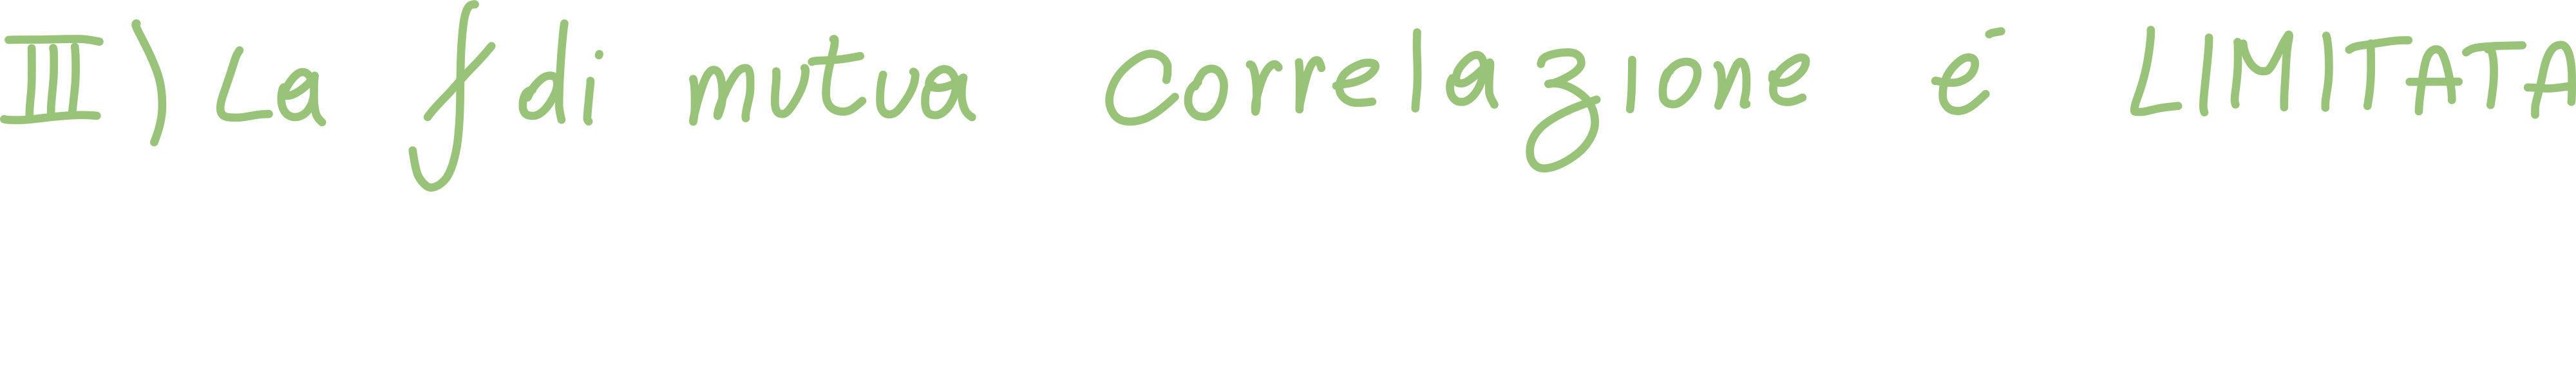 III) La f di mutua Correlazione é LIMITATA